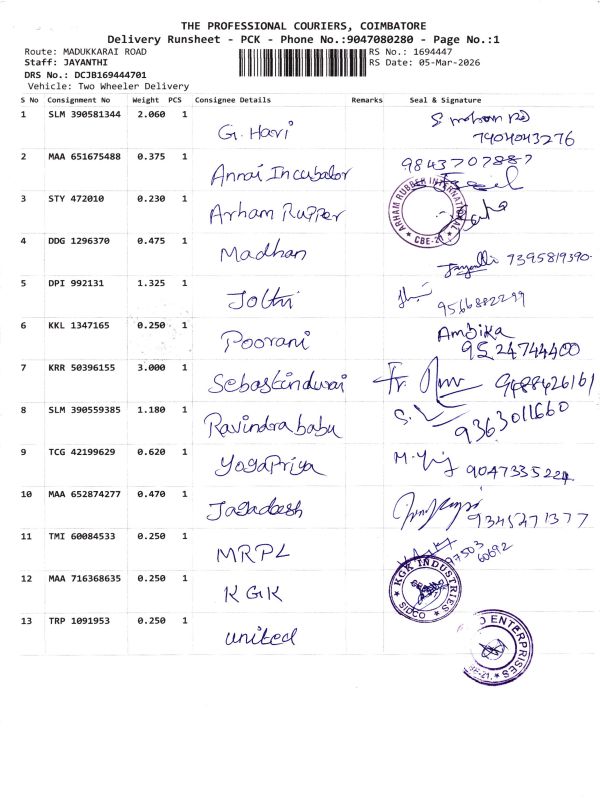 THE PROFESSIONAL COURIERS, COIMBATORE
Delivery Runsheet - PCK - Phone No.:9047080280 - Page No.:1
Route: MADUKKARAI ROAD RS No.: 1694447
Staff: JAYANTHI RS Date: 05-Mar-2026
DRS No.: DCJB169444701
Vehicle: Two Wheeler Delivery
S No Consignment No Weight PCS Consignee Details Remarks Seal & Signature
1 SLM 390581344 2.060 1 G. Hari
7904043276
2 MAA 651675488 0.375 1 Annai Incubator 9843707887
3 STY 472010 0.230 1 Arham Rupper ARHAM RUBBER INTERNATIONAL CBE-21
4 DDG 1296370 0.475 1 Madhan 7395819390
5 DPI 992131 1.325 1 Jothi 9566882299
6 KKL 1347165 0.250 1 Poorani Ambika
9524744400
7 KRR 50396155 3.000 1 Sebastindurai 9488426161
8 SLM 390559385 1.180 1 Ravindrababu 9363011660
9 TCG 42199629 0.620 1 Yogapriya 9047335224
10 MAA 652874277 0.470 1 Jagadeesh 9345271377
11 TMI 60084533 0.250 1 MRPL 97503
60692
12 MAA 716368635 0.250 1 KGK KGK INDUSTRIES SIDCO
13 TRP 1091953 0.250 1 united ENTERPRISES